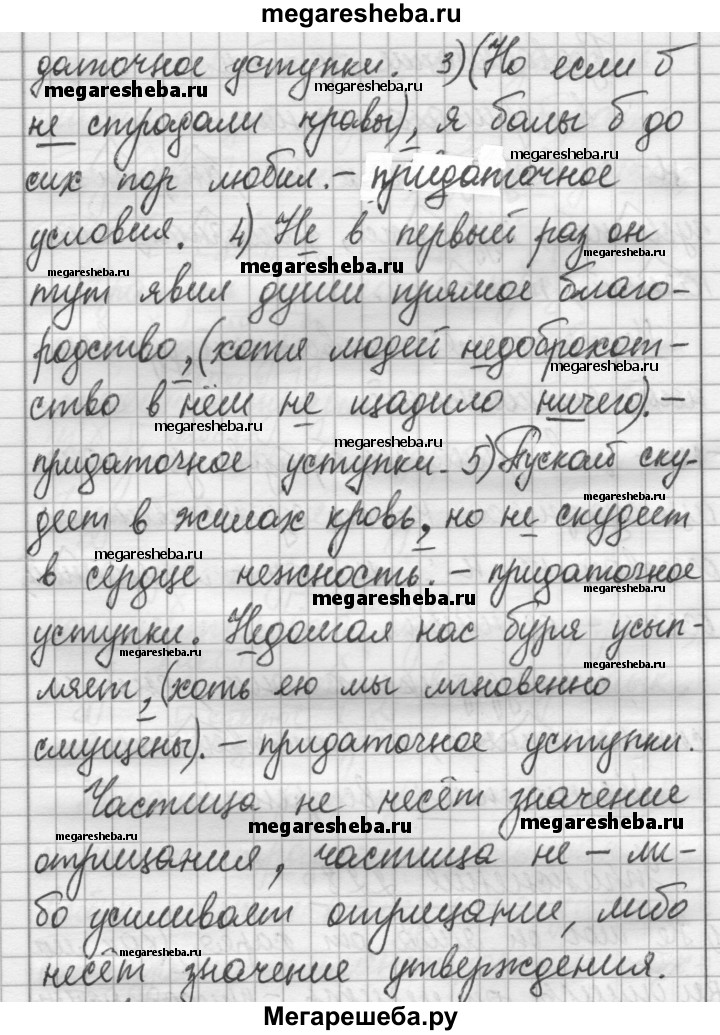 megaresheba.ru
даточное уступки. 3) (Но если б
megaresheba.ru megaresheba.ru
не страдали нравы), я балы б до
megaresheba.ru
сих пор любил. – придаточное
условия. 4) Не в первый раз он
megaresheba.ru megaresheba.ru megaresheba.ru
тут явил души прямое благо-
родство, (хотя людей недоброхот-
megaresheba.ru
ство в нём не щадило ничего). –
megaresheba.ru megaresheba.ru
придаточное уступки. 5) Пускай ску-
megaresheba.ru
деет в жилах кровь, но не скудеет
megaresheba.ru
в сердце нежность. – придаточное
megaresheba.ru megaresheba.ru
уступки. Недолгая нас буря усып-
megaresheba.ru megaresheba.ru
ляет, (хоть ею мы мгновенно
смущены). – придаточное уступки.
Частица не несёт значение
megaresheba.ru megaresheba.ru megaresheba.ru
отрицания, частица не – ли-
бо усиливает отрицание, либо
megaresheba.ru
несёт значение утверждения.
Мегарешеба.ру